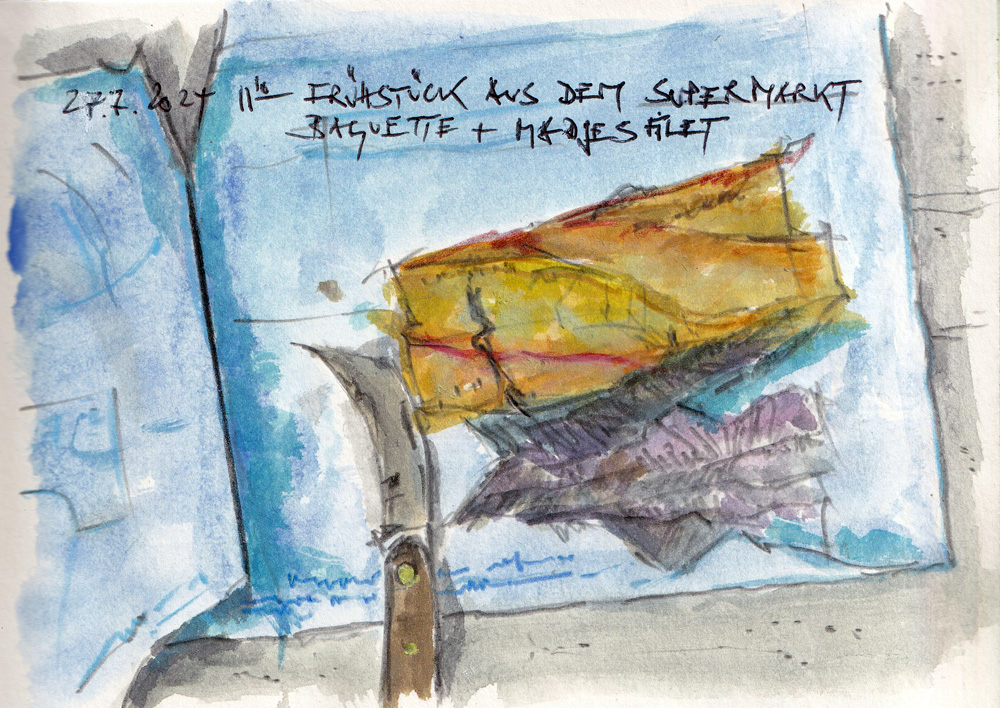 27.7.2024 11¹⁰ FRÜHSTÜCK AUS DEM SUPERMARKT
BAGUETTE + MADJESFILET